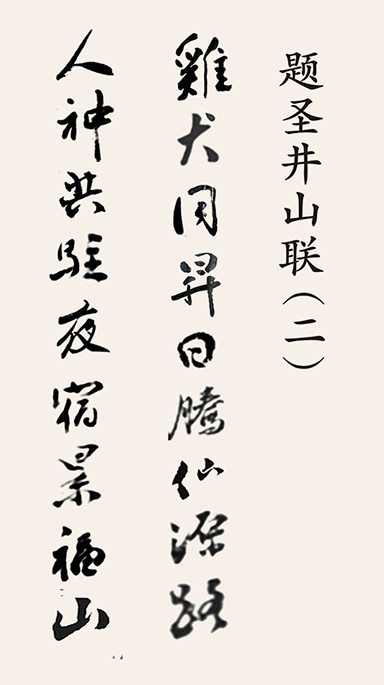 题圣井山联（二）
雞犬同昇日騰仙源路
人神共駐夜宿景福山